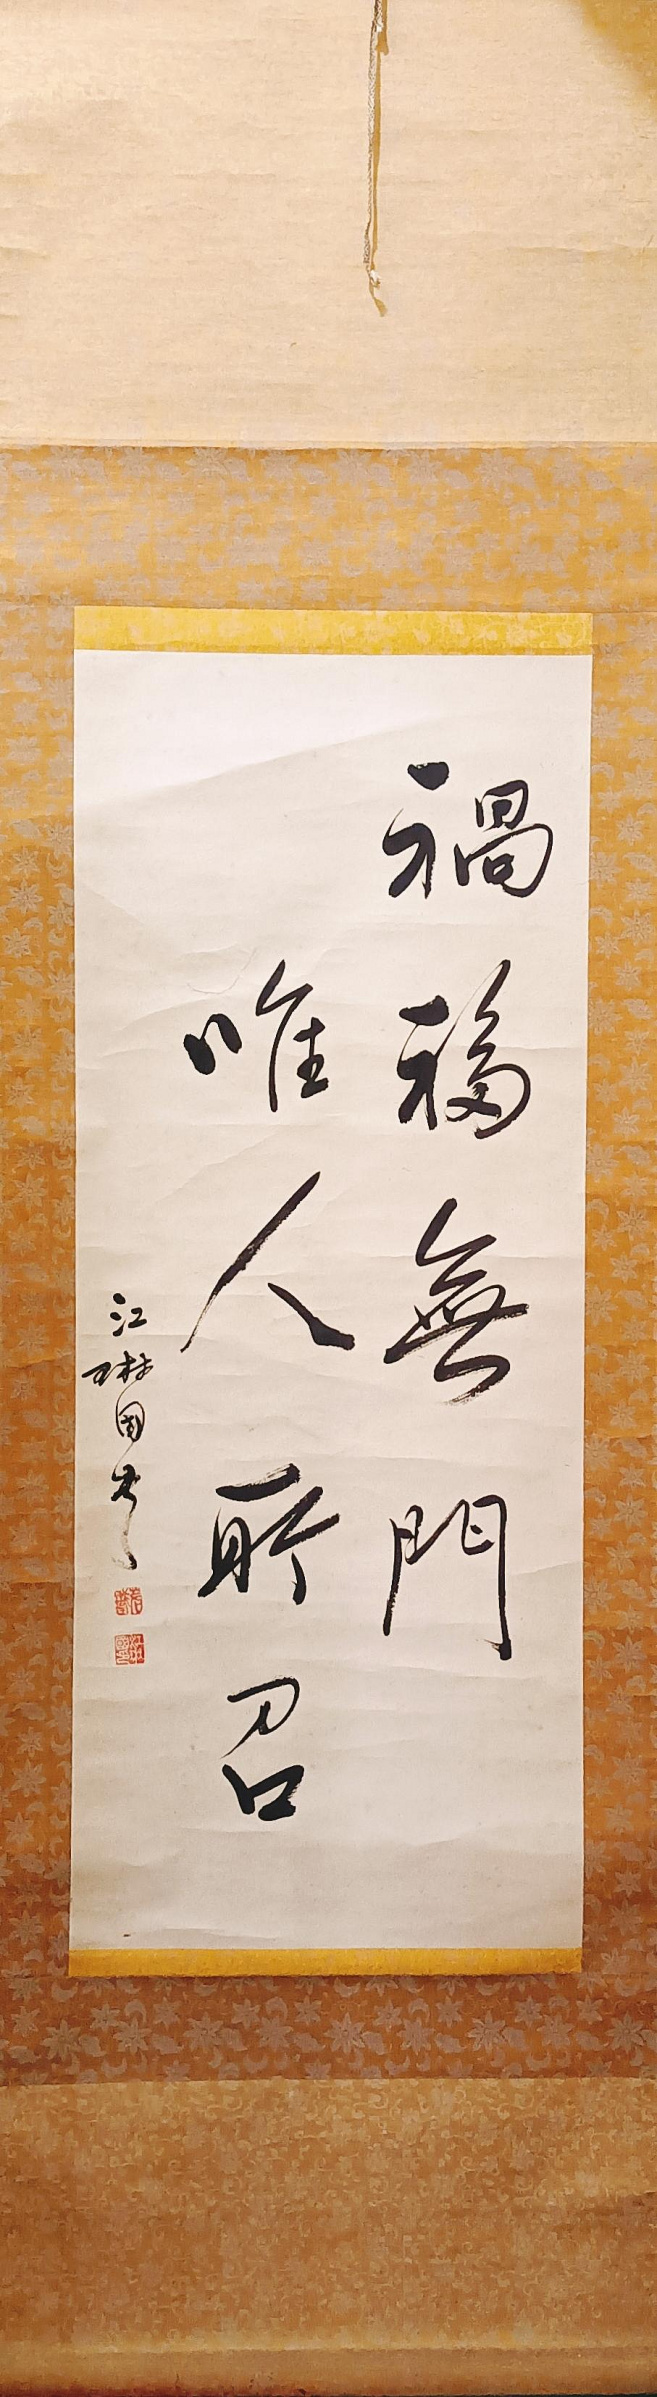 禍福無門
唯人所召
江琳國書